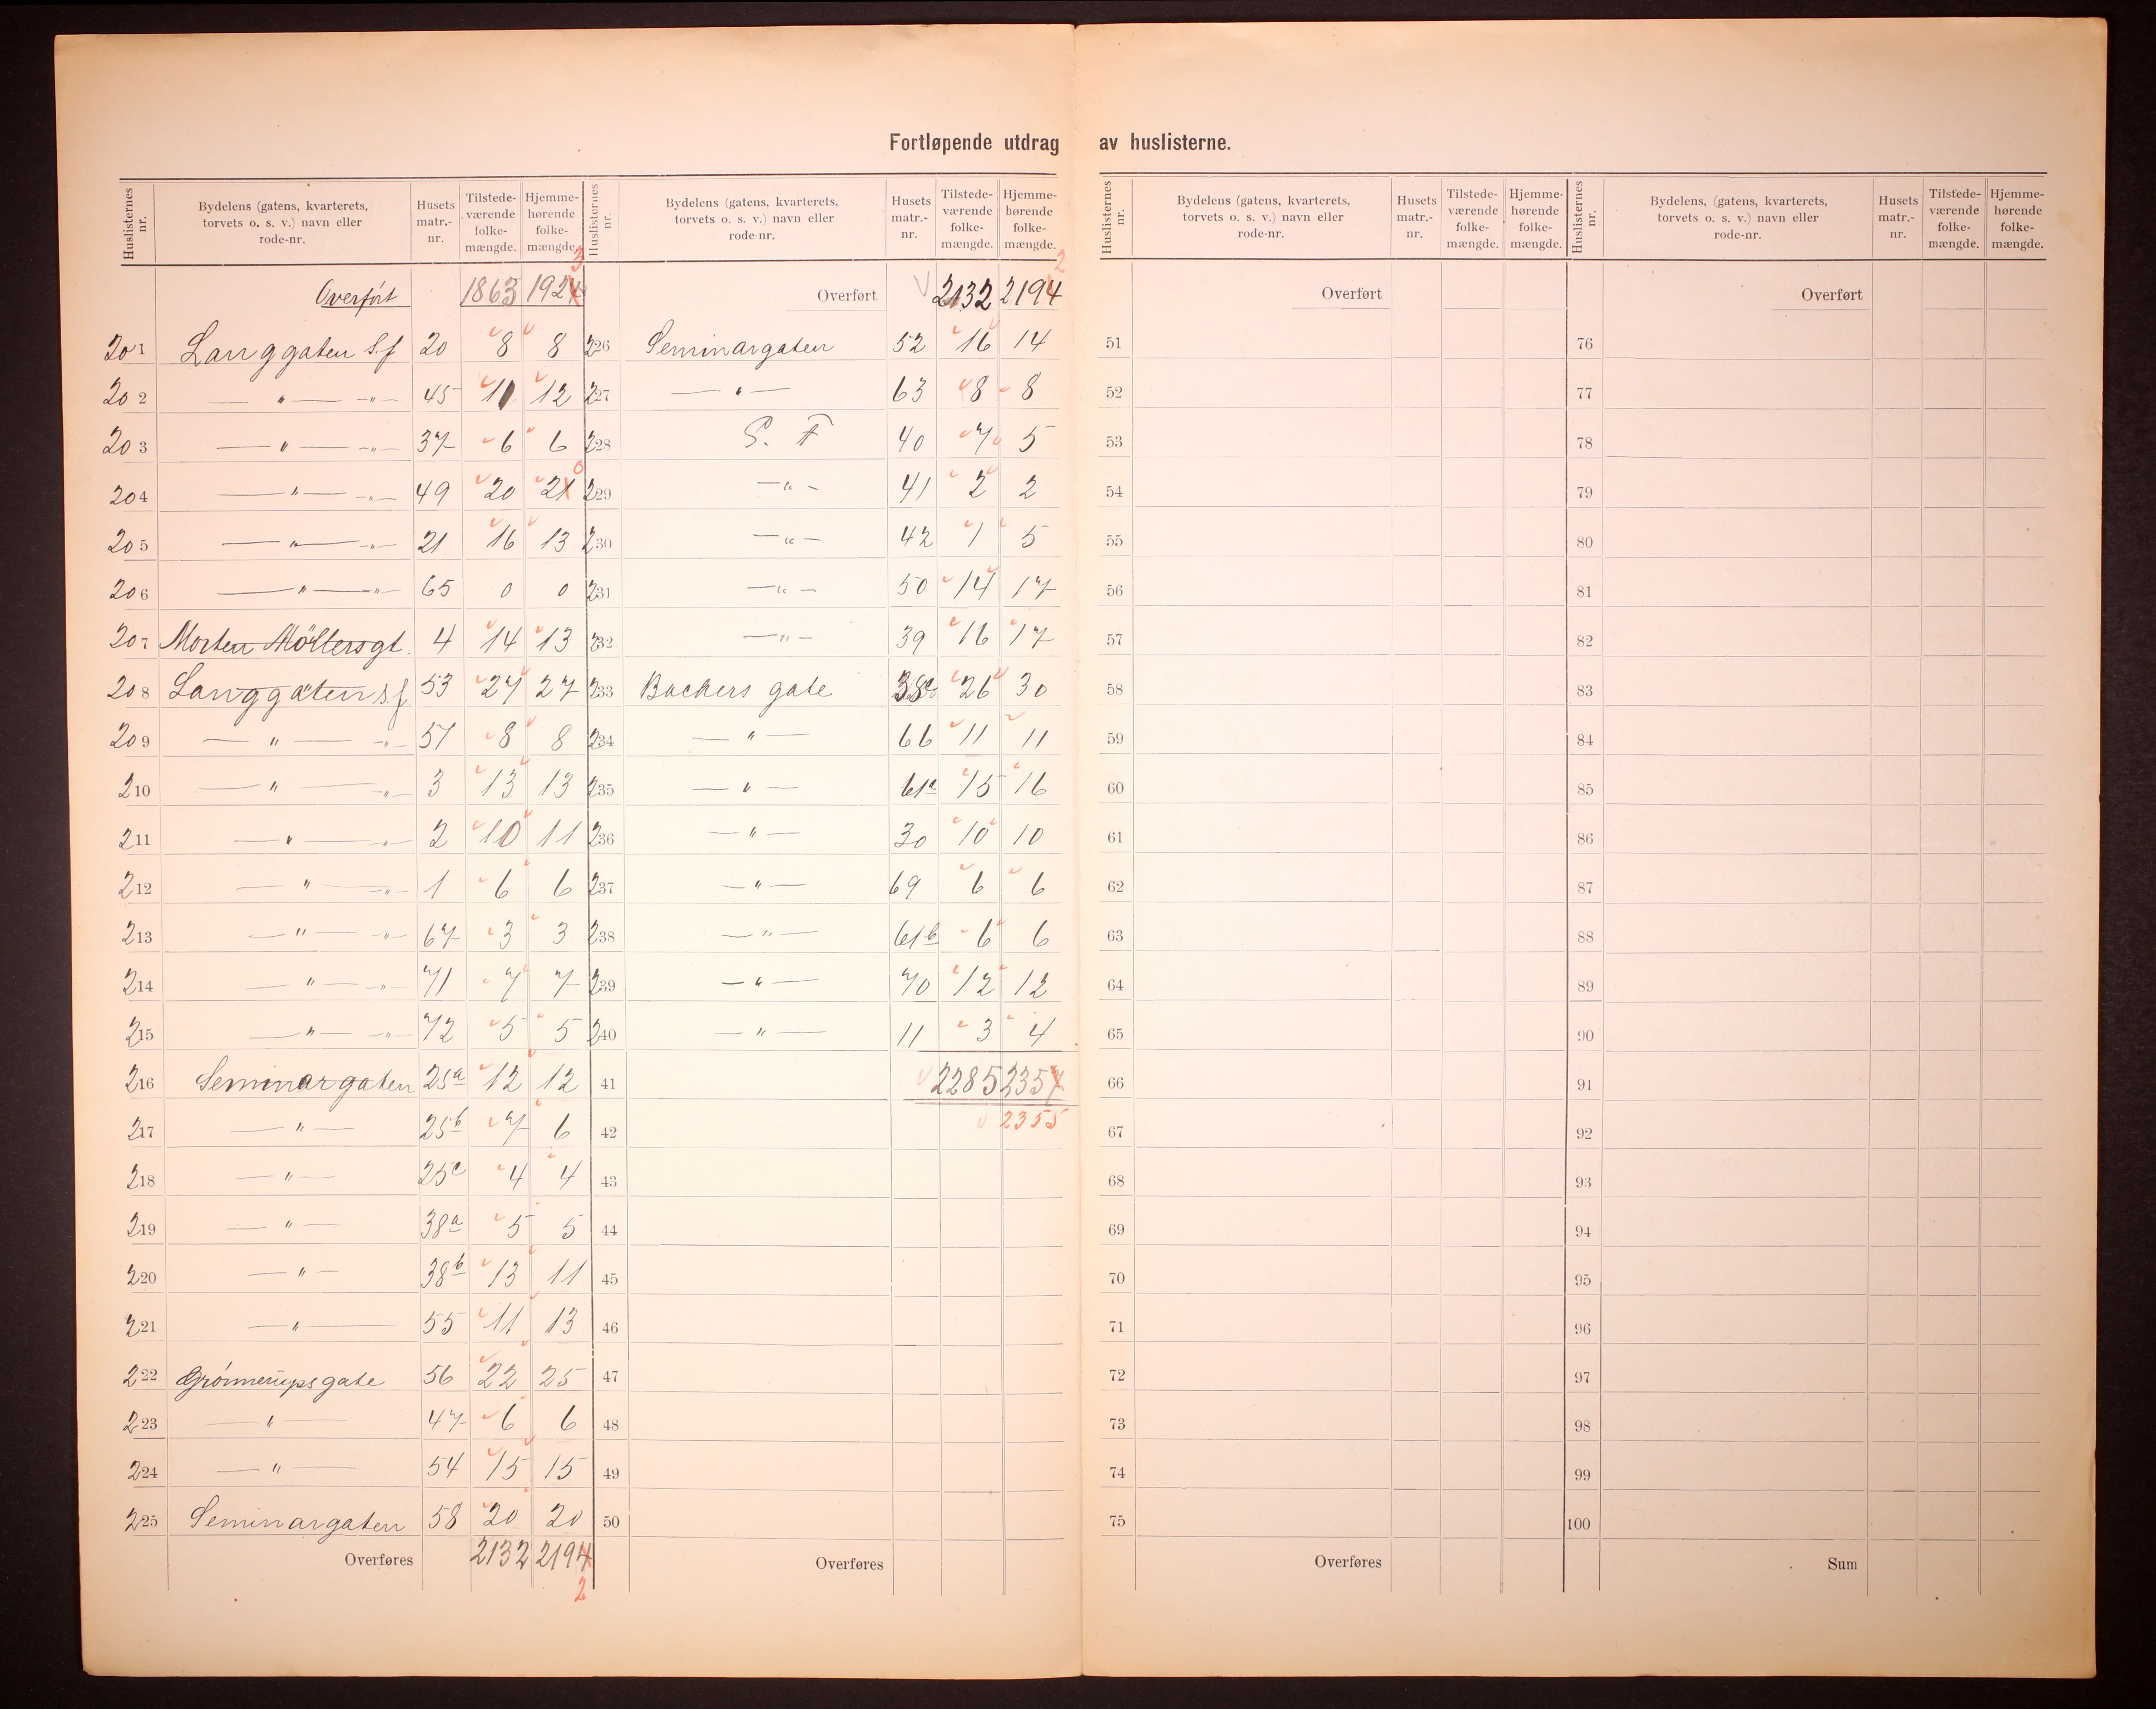 Fortløpende utdrag av huslisterne.
Huslisternes nr. | Bydelens (gatens, kvarterets, torvets o. s. v.) navn eller rode-nr. | Husets matr.-nr. | Tilstede-værende folke-mængde. | Hjemme-hørende folke-mængde.
Overført 1863 1924 3
201 Langgaten S.f 20 8 8
202 — " — -"- 45 11 12
203 — " — -"- 37 6 6
204 — " — -"- 49 20 21 0
205 — " — -"- 21 16 13
206 — " — -"- 65 0 0
207 Morten Möllersgt. 4 14 13
208 Langgaten s.f 53 27 27
209 — " — -"- 57 8 8
210 — " — -"- 3 13 13
211 — " — -"- 2 10 11
212 — " — -"- 1 6 6
213 — " — -"- 67 3 3
214 — " — -"- 71 7 7
215 — " — -"- 72 5 5
216 Seminargaten 25a 12 12
217 — " — 25b 7 6
218 — " — 25c 4 4
219 — " — 38a 5 5
220 — " — 38b 13 11
221 — " — 55 11 13
222 Grönnerupsgate 56 22 25
223 — " — 47 6 6
224 — " — 54 15 15
225 Seminargaten 58 20 20
Overføres 2132 2194
2
Huslisternes nr. | Bydelens (gatens, kvarterets, torvets o. s. v.) navn eller rode-nr. | Husets matr.-nr. | Tilstede-værende folke-mængde. | Hjemme-hørende folke-mængde.
Overført 2132 2194 2
226 Seminargaten 52 16 14
227 — " — 63 8 8
228 S. F 40 7 5
229 — " — 41 2 2
230 — " — 42 1 5
231 — " — 50 14 17
232 — " — 39 16 17
233 Backers gate 38c 26 30
234 — " — 66 11 11
235 — " — 61a 15 16
236 — " — 30 10 10
237 — " — 69 6 6
238 — " — 61b 6 6
239 — " — 70 12 12
240 — " — 11 3 4
41 2285 2357
42 2355
43
44
45
46
47
48
49
50
Overføres
Huslisternes nr. | Bydelens (gatens, kvarterets, torvets o. s. v.) navn eller rode-nr. | Husets matr.-nr. | Tilstede-værende folke-mængde. | Hjemme-hørende folke-mængde.
Overført
51
52
53
54
55
56
57
58
59
60
61
62
63
64
65
66
67
68
69
70
71
72
73
74
75
Overføres
Huslisternes nr. | Bydelens, (gatens, kvarterets, torvets o. s. v.) navn eller rode-nr. | Husets matr.-nr. | Tilstede-værende folke-mængde. | Hjemme-hørende folke-mængde.
Overført
76
77
78
79
80
81
82
83
84
85
86
87
88
89
90
91
92
93
94
95
96
97
98
99
100
Sum